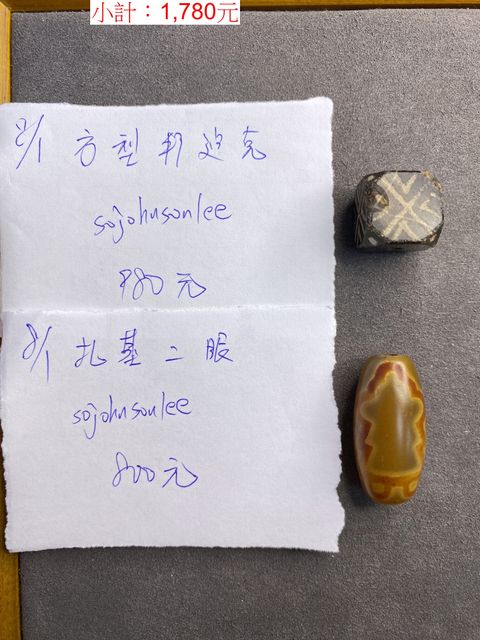 小計：1,780元
8/1 方型邦迪克
sojohnsonlee
980元
8/1 扎基二眼
sojohnsonlee
800元